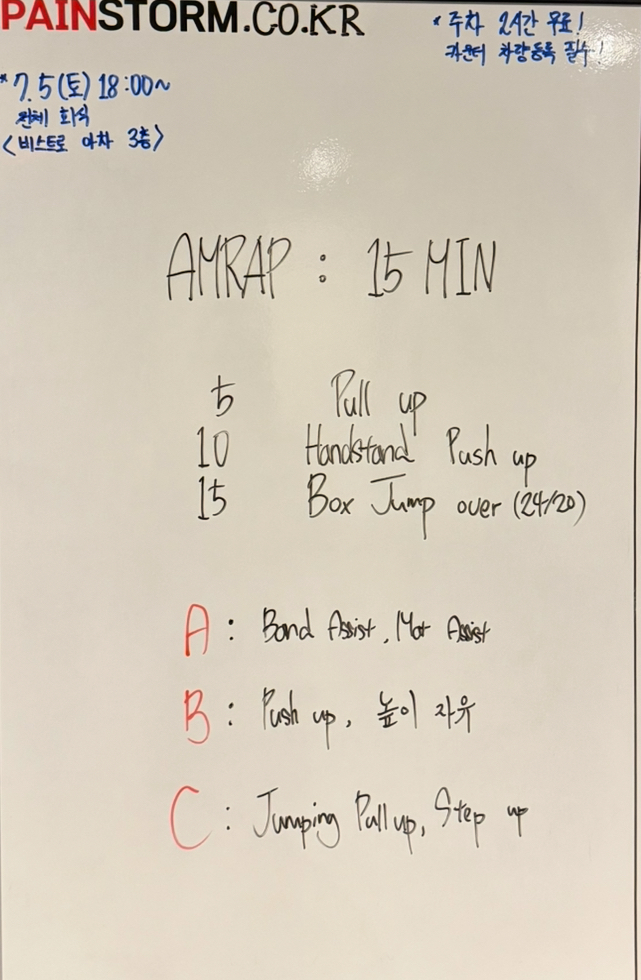 PAINSTORM.CO.KR
* 주차 2시간 무료!
카운터 차량등록 필수!
* 7.5(토) 18:00~
전체 회식
<비스트로 아차 3층>
AMRAP : 15 MIN
5 Pull up
10 Handstand Push up
15 Box Jump over (24/20)
A : Band Assist, Mat Assist
B : Push up, 높이 자유
C : Jumping Pull up, Step up